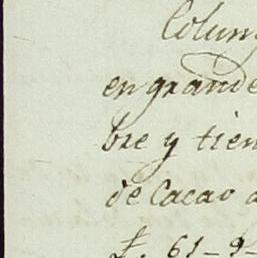 Colum
en grande
bre y tien
de Cacao a
f. 61-9-